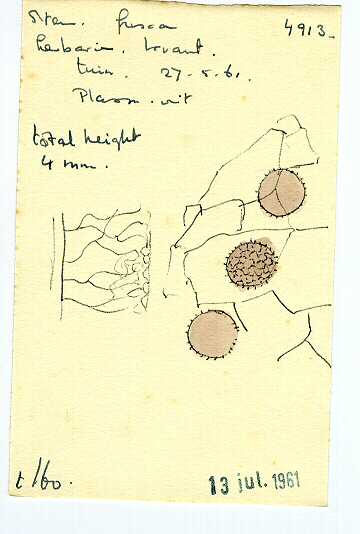 Stem. fusca
4913.
herbarium
tuin. 27-5-61.
Plasm. wit
total height
4 mm.
t/60.
13 jul. 1961